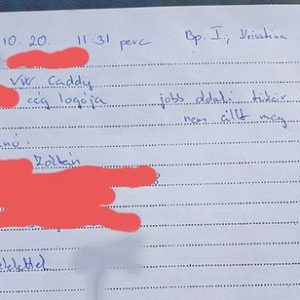 10. 20. 11:31 perc Bp. I., Krisztina
VW Caddy
cég logója jobb oldali tükör
nem állt meg
Zoltán